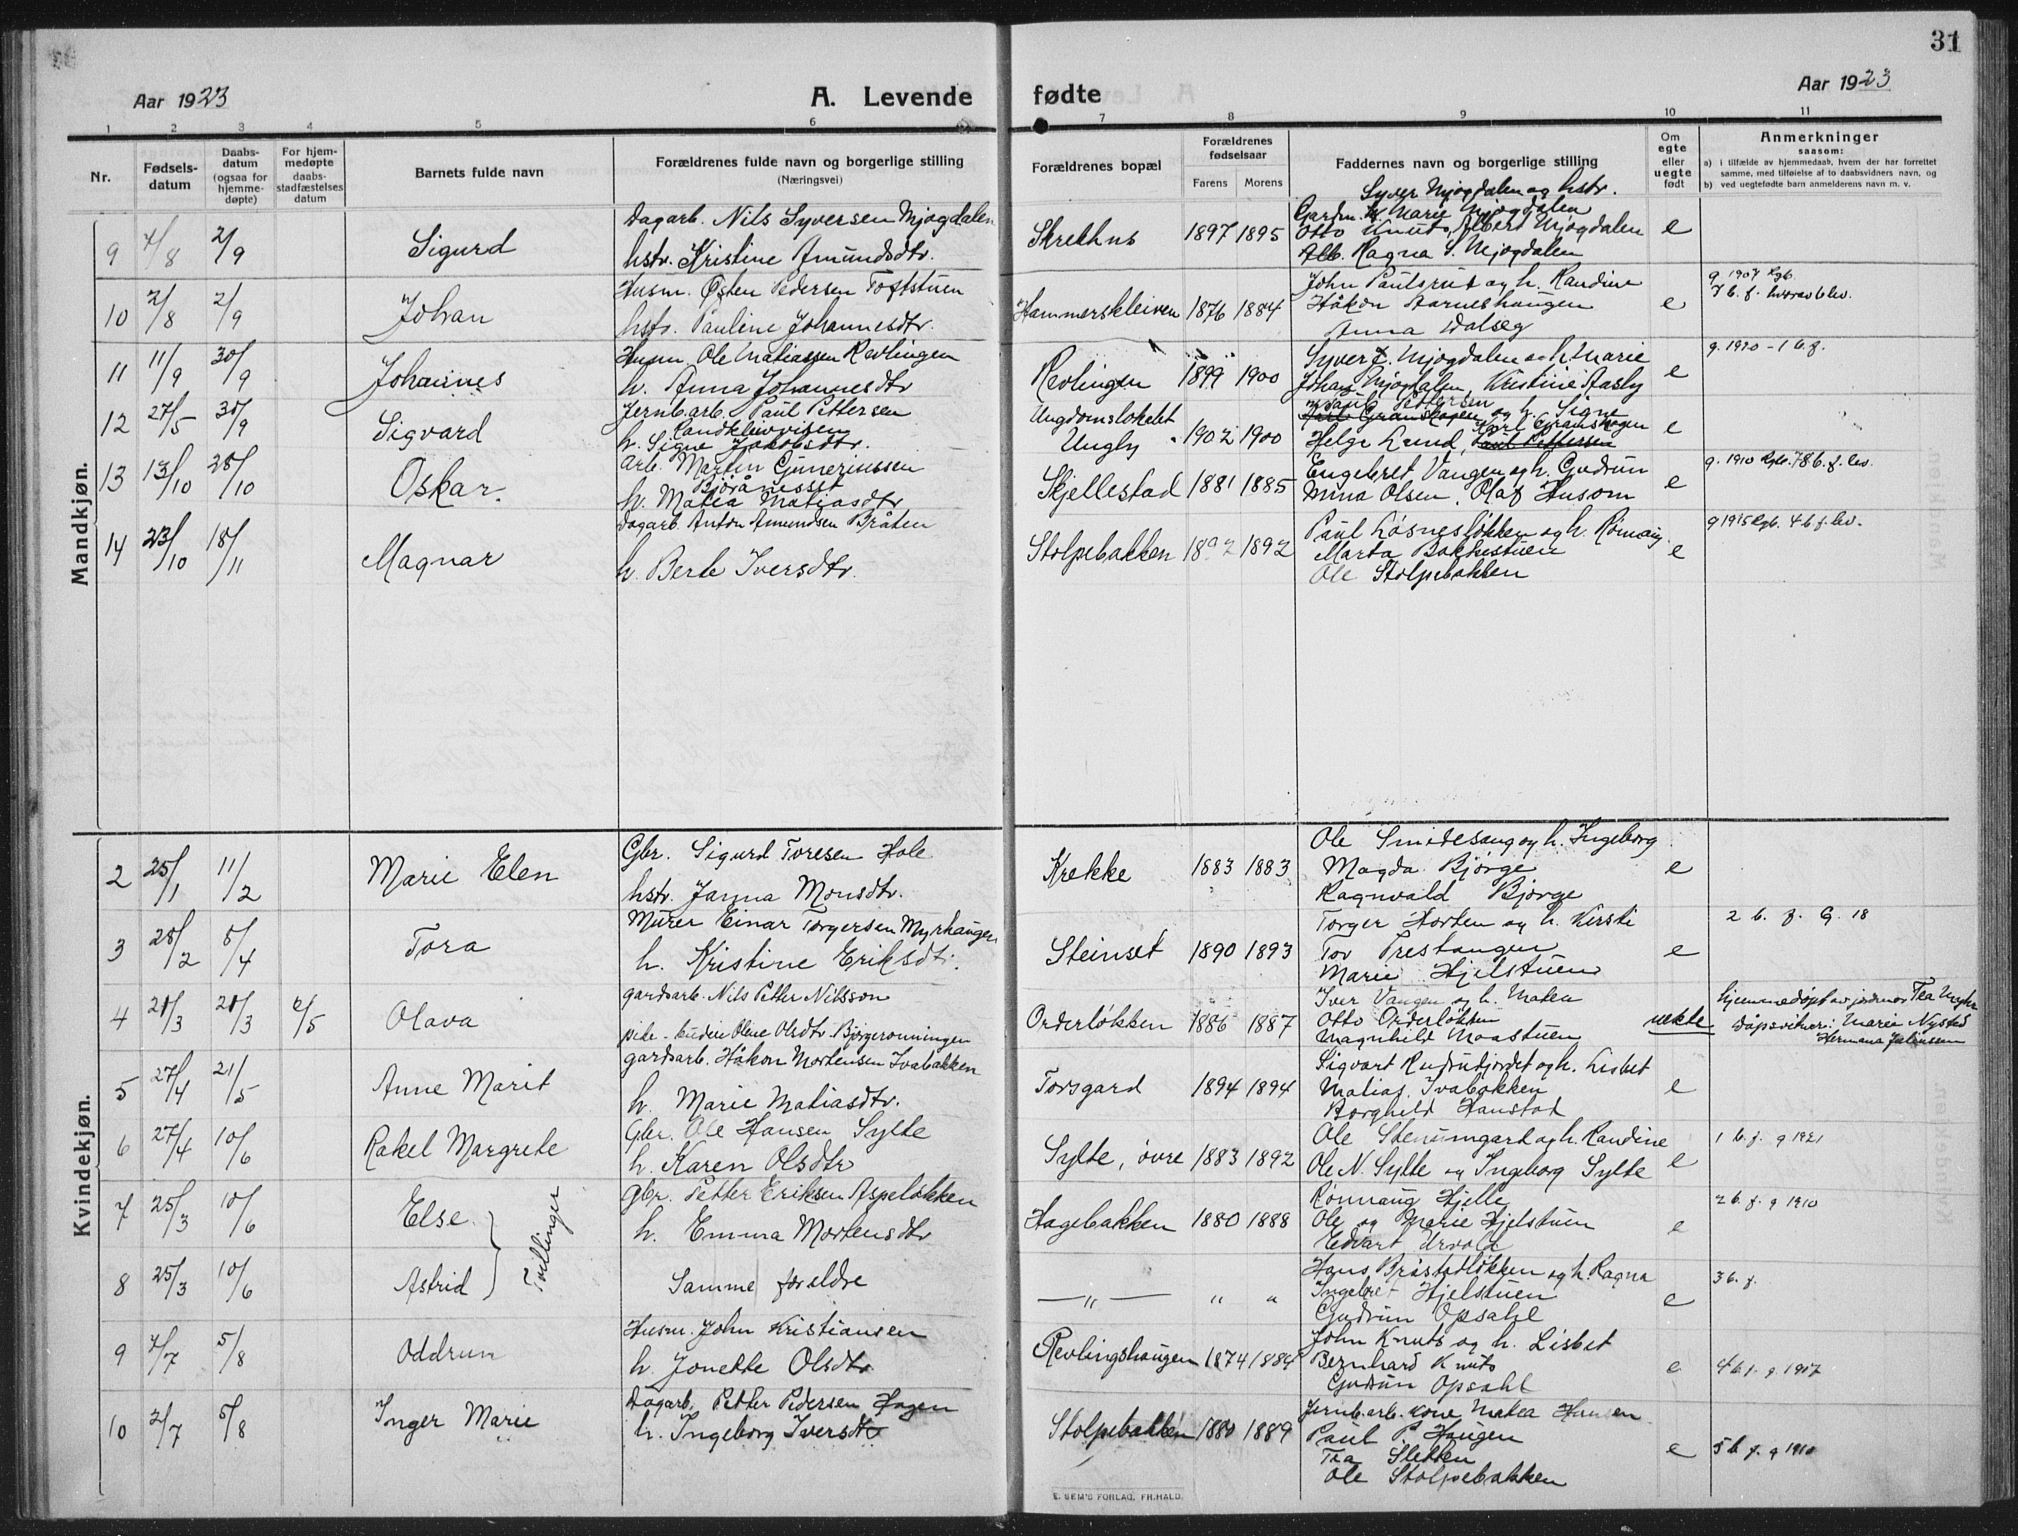 31
Aar 1923
A. Levende
fødte
Aar 1923
1 2 3 4 5 6 7 8 9 10 11
Nr.
Fødsels-
datum
Daabs-
datum
(ogsaa for
hjemme-
døpte)
For hjem-
medøpte
daabs-
stadfæstelses
datum
Barnets fulde navn
Forældrenes fulde navn og borgerlige stilling
(Næringsvei)
Forældrenes bopæl
Forældrenes
fødselsaar
Farens Morens
Faddernes navn og borgerlige stilling
Om
egte
eller
uegte
født
Anmerkninger
saasom:
a) i tilfælde av hjemmedaab, hvem der har forrettet
samme, med tilføielse af to daabsvidners navn, og
b) ved uegtefødte barn anmelderens navn m. v.
Mandkjøn.
9 4/8 2/9 Sigurd
Dagarb. Nils Syversen Mjøgdalen
hstr. Kristine Amundsdtr.
Skrethus 1897 1895
Syver Mjøgdalen og hstr.
Gardm. Marie Mjøgdalen
Otto Knuts, Albert Mjøgdalen
Alb. Ragna S. Mjøgdalen
e
10 2/8 2/9 Johan
Husm. Østen Pedersen Toftstuen
hstr. Pauline Johannesdtr.
Hammerskleiven 1876 1884
John Paulsrud og h. Randine
Håkon Aarneshaugen
Anna Dalseg
e
g. 1907 Rgb.
7 b. f. hvorav 6 lev.
11 11/9 30/9 Johannes
Husm. Ole Matiassen Revlingen
h. Anna Johannesdtr
Revlingen 1899 1900
Syver J. Mjøgdalen og h. Marie
Johan Mjøgdalen, Kristine Aasby
e
g. 1920 - 1 b. f.
12 27/5 30/9 Sigvard
Jernb.arb. Paul Pettersen
Randkleivvisen
h. Signe Jakobsdtr.
Ungdomslokalet
Ungby 1902 1900
Paul Pettersen
og h. Signe
Karl Gramshagen
Helge Lund, Paul Pettersen
e
13 13/10 28/10 Oskar.
Arb. Martin Guneriussen
Bjøråneset
h. Matea Matiasdtr
Skjellestad 1881 1885
Engebret Vangen og h. Gudrun
Mina Olsen, Olaf Husom
e
g. 1910 Rgb. 7 8 b. f. lev.
14 23/10 18/11 Magnar
Dagarb. Anton Amundsen Bråten
h. Berte Iversdtr.
Stolpebakken 1892 1892
Paul Løsnesløkken og h. Rønnaug.
Marta Bakkestuen
Ole Stolpebakken
e
g 1915 Rgb. 4 b f. lev.
Kvindekjøn.
2 25/1 11/2 Marie Elen
Gbr. Sigurd Toresen Hole
hstr. Janna Monsdtr.
Krekke 1883 1883
Ole Smidesang og h. Ingeborg
Magda Bjørge
Ragnvald Bjørge
e
3 28/2 8/4 Tora
Murer Einar Torgersen Myrhaugen
h. Kristine Eriksdtr.
Steinset 1890 1893
Torger Horten og h. Kirsti
Tov Prestangen
Marie Hjelstuen
e
2 b. f. G. 18
4 20/3 20/3 6/5 Olava
gardsarb. Nils Petter Nilsson
pike - budeie Olene Olsdtr. Bjørgerønningen
Orderløkken 1886 1887
Iver Vangen og h. Matea
Otto Orderløkken
Magnhild Moastuen
uekte
hjemmedøpt av jordmor Tea Myhr
døpsvitner: Marie Nystad
Hermana Juliussen
5 27/4 21/5 Anne Marit
gardsarb. Håkon Mortensen Ivabakken
h. Marie Matiasdtr.
Torsgard 1894 1894
Sigvart Rudrudjordet og h. Lisbet
Matias Ivabakken
Borghild Hanstad
e
6 27/4 10/6 Rakel Margrete
Gbr. Ole Hansen Sylte
h. Karen Olsdtr
Sylte, øvre 1883 1892
Ole Stenumgard og h. Randine
Ole N. Sylte og Ingeborg Sylte
e
1 b. f. g 1921
7 25/3 10/6 Else
Tvillinger
Gbr. Petter Eriksen Aspeløkken
h. Emma Mortensdtr
Hagebakken 1880 1888
Rønnaug Hjelle
Ole og Marie Hjelstuen
Edvart Ervold
e
2 b. f. g 1910
8 25/3 10/6 Astrid
Samme foreldre
— " — " "
Hans Bråstadløkken og h. Ragna
Ingebret Hjelstuen
Gudrun Opsahl
e
3 b. f.
9 4/7 5/8 Oddrun
Husm. John Kristiansen
h. Jonette Olsdtr
Revlingshaugen 1874 1884
John Knuts og h. Lisbet
Bernhard Knuts
Gudrun Opsahl
e
4 b f. g. 1907
10 2/7 5/8 Inger Marie
Dagarb. Petter Pedersen Hagen
h. Ingeborg Iversdtr
Stolpebakken 1880 1889
Jernb.arb. kone Matea Hansen
Paul P. Haugen
Tea Sletten
Ole Stolpebakken
e
5 b. f. g 1910
E. SEM'S FORLAG, FR.HALD.